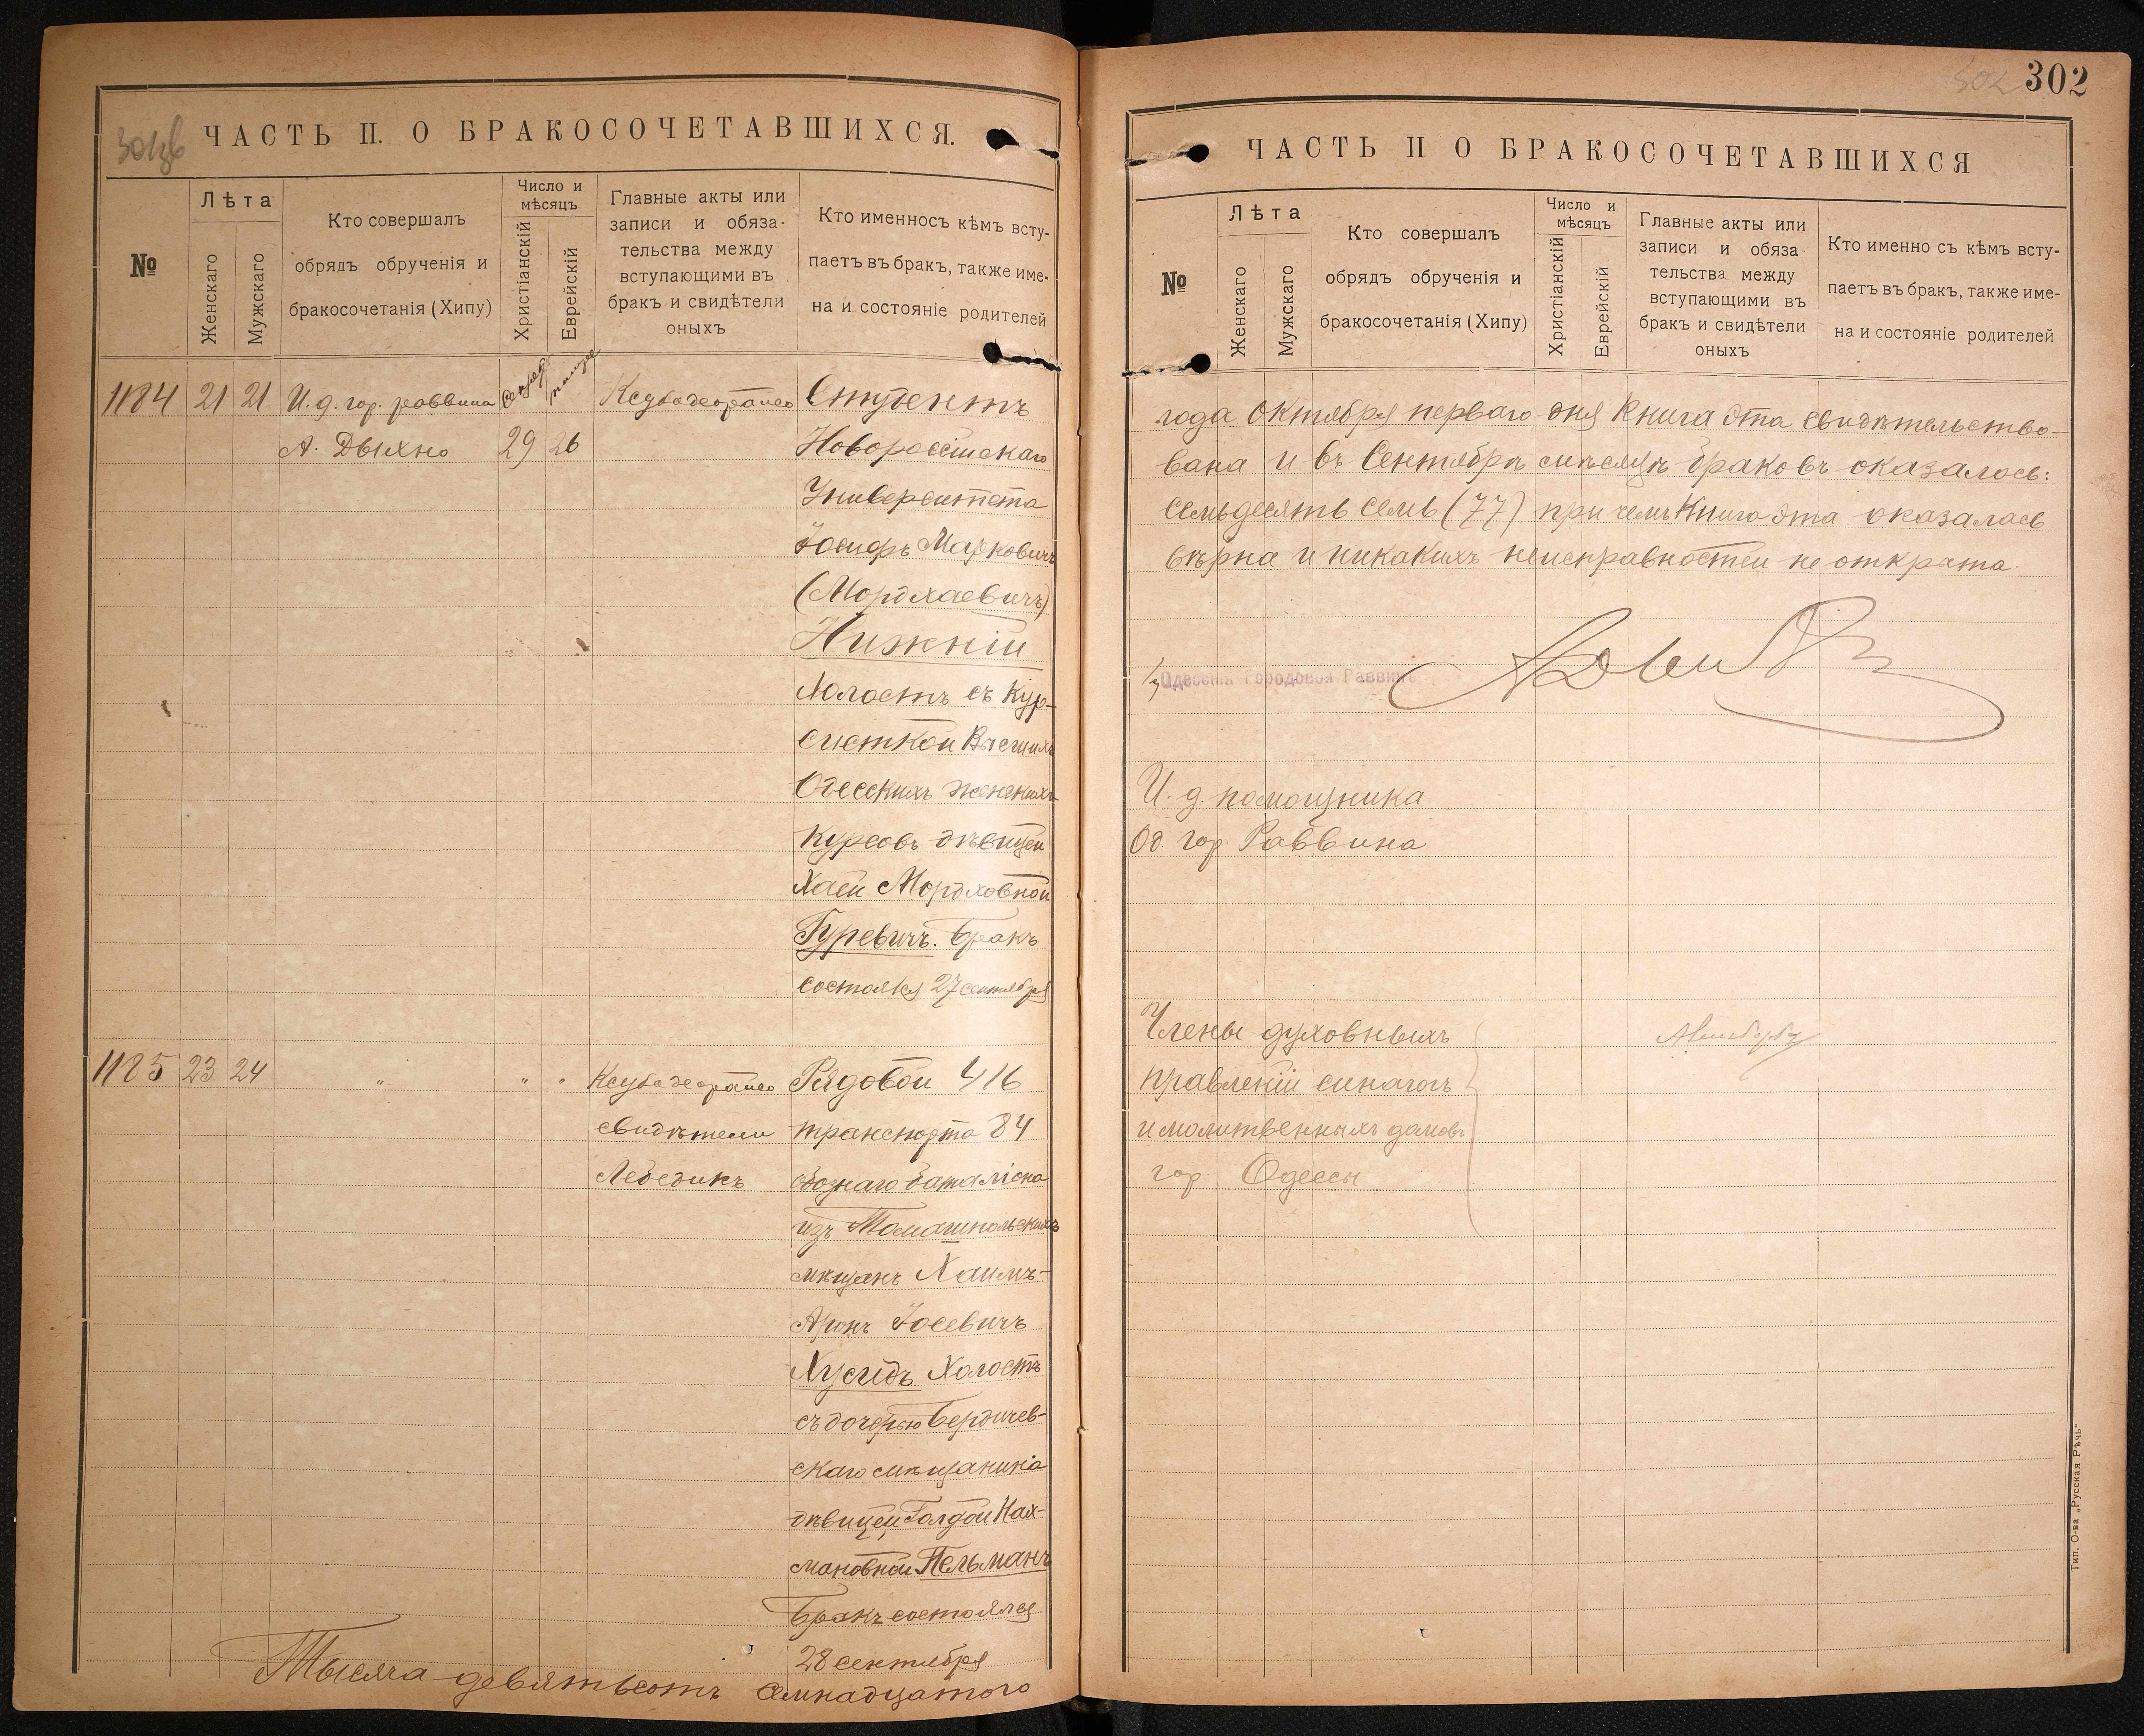 301об
ЧАСТЬ II. О БРАКОСОЧЕТАВШИХСЯ.
№
Лѣта
Женскаго
Мужскаго
Кто совершалъ
обрядъ обрученія и
бракосочетанія (Хипу)
Число и
мѣсяцъ
Христіанскій
Еврейскій
Главные акты или
записи и обяза-
тельства между
вступающими въ
бракъ и свидѣтели
оныхъ
Кто именносъ кѣмъ всту-
паетъ въ бракъ, также име-
на и состояніе родителей
1184 21 21 И. д. гор. раввина
А. Дыхно 29 26
Студентъ
Новороссійскаго
Университета
Іосифъ Марковичъ
(Мордхаевичъ)
Нижній
холостъ съ Кур-
систкой Высшихъ
Одесскихъ женскихъ
Курсовъ дѣвицей
Хаей Мордховной
Гуревичъ. Бракъ
состоялся 27 сентября
1185 23 24 " " "
свидѣтели
Лебедикъ
Рядовой 416
транспорта 84
обознаго баталіона
изъ Томашпольскихъ
мѣщанъ Хаимъ-
Аронъ Іосевичъ
Хусидъ Холостъ
съ дочерью Бердичев-
скаго мѣщанина
дѣвицей Голдой Нах-
мановной Пельманъ
Бракъ состоялся
28 сентября
Тысяча девятьсотъ семнадцатого
302 302
ЧАСТЬ II О БРАКОСОЧЕТАВШИХСЯ
№
Лѣта
Женскаго
Мужскаго
Кто совершалъ
обрядъ обрученія и
бракосочетанія (Хипу)
Число и
мѣсяцъ
Христіанскій
Еврейскій
Главные акты или
записи и обяза-
тельства между
вступающими въ
бракъ и свидѣтели
оныхъ
Кто именно съ кѣмъ всту-
паетъ въ бракъ, также име-
на и состояніе родителей
года Октября перваго дня Книга эта свидѣтельство-
вана и въ Сентябрѣ мѣсяцѣ браковъ оказалось:
семьдесятъ семь (77) при чемъ Книга эта оказалась
вѣрна и никакихъ неисправностей не открыто.
Одесскій Городовой Раввинъ
И. д. помощника
Од. гор. Раввина
Члены духовныхъ
правленій синагогъ
и молитвенныхъ домовъ
гор. Одессы
Тип. О-ва „Русская Рѣчь"